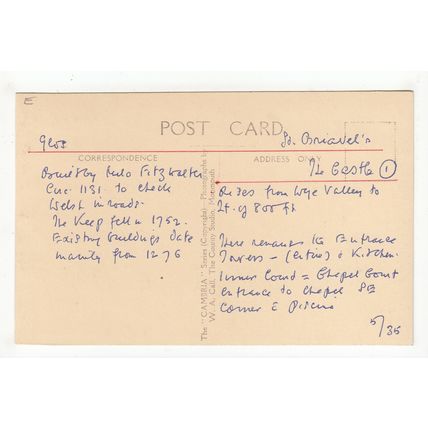 E
POST CARD
Glos
St. Briavel's
CORRESPONDENCE
ADDRESS ONLY
The Castle 1
Built by Milo Fitzwalter
Circ 1131 to check
Welsh inroads.
The Keep fell in 1752.
Existing buildings date
mainly from 1276
The "CAMBRIA" Series (Copyright).—Photographs by
W. A. Call, The County Studio, Monmouth
Rises from Wye Valley to
ht. of 800 ft
There remains the Entrance
Towers - & Kitchen.
Inner Court = Chapel Court
Entrance to Chapel SE
Corner & Piscina
5/35